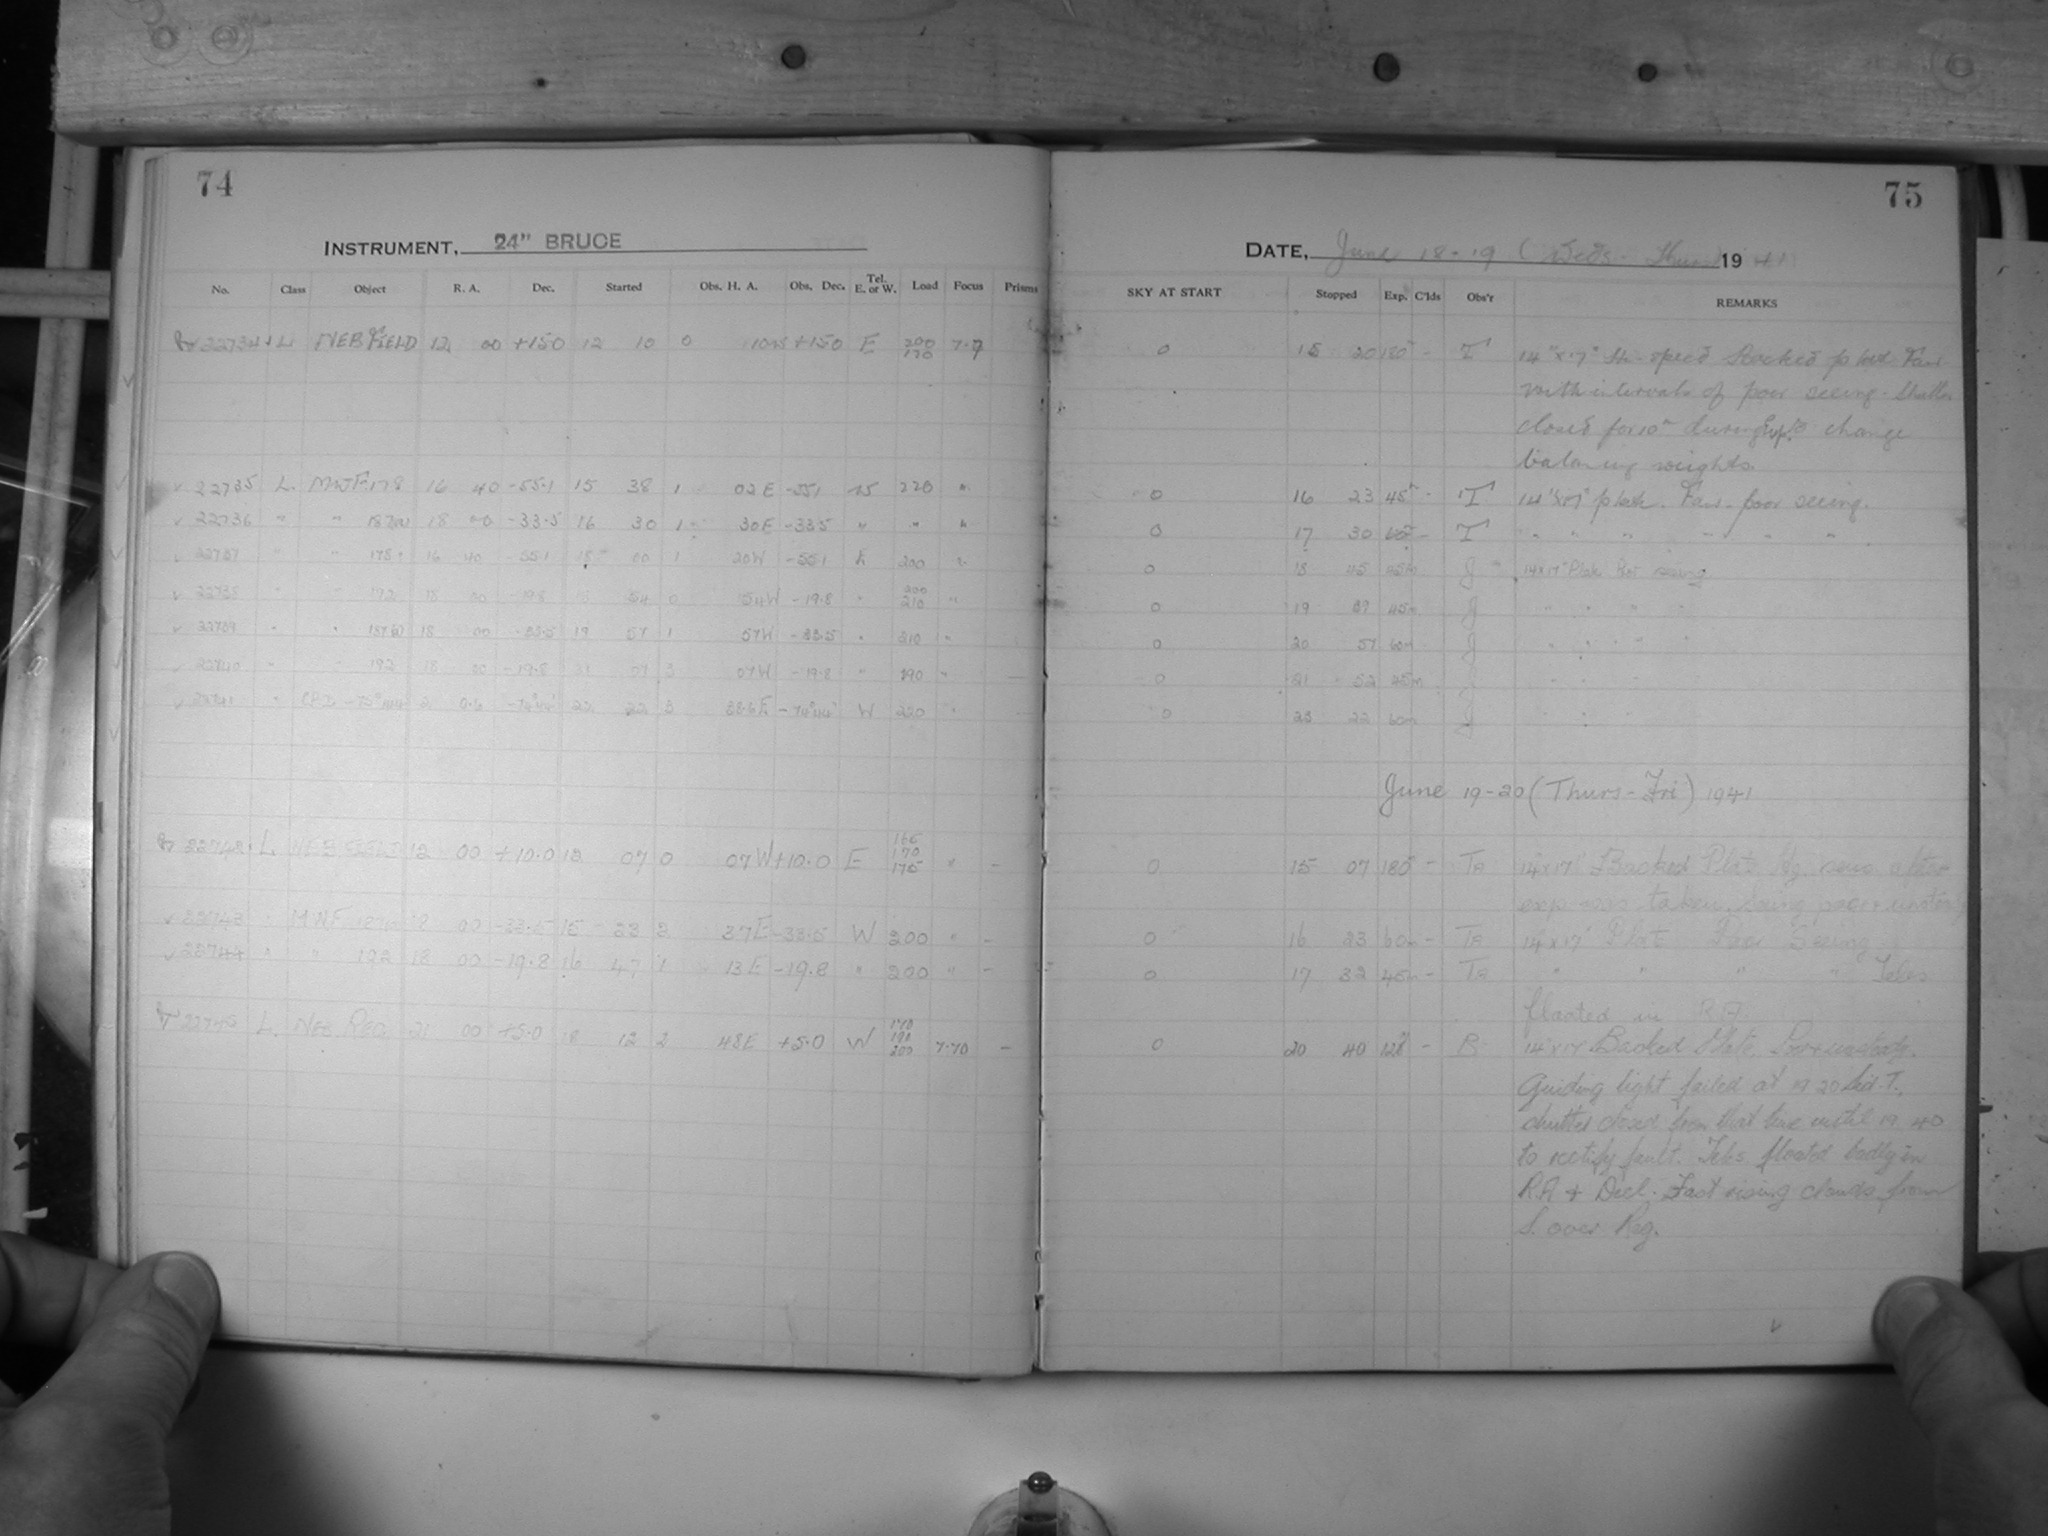 74
INSTRUMENT, 24" BRUCE
No. Class Object R. A. Dec. Started Obs. H. A. Obs. Dec. Tel. E. or W. Load Focus Prisms
22734 L. NEB FIELD 12 00 +15.0 12 10 0 10W +15.0 E 200 170 7.7
22735 L. MWF 178 16 40 -55.1 15 38 1 02E -55.1 220 "
22736 " " 18 00 -33.5 16 30 1 30E -33.5 " " "
22737 " " 178 16 40 -55.1 18 00 1 20W -55.1 E 200 "
22738 " " 192 18 00 -19.8 18 54 0 54W -19.8 " 200 210 "
22739 " " 187 18 00 -33.5 19 57 1 57W -33.5 " 210 "
22740 " " 192 18 00 -19.8 21 07 3 07W -19.8 " 190 "
22741 " 22 22 3 38.6E -74°44' W 220 "
22742 L. NEB FIELD 12 00 +10.0 12 07 0 07W +10.0 E 165 170 175 " -
22743 " MWF 18 00 -33.5 15 33 2 37E -33.5 W 200 " -
22744 " " 192 18 00 -19.8 16 47 1 13E -19.8 " 200 " -
22745 L. NEB REG. 21 00 +5.0 18 12 2 48E +5.0 W 170 190 200 7.70 -
75
DATE, June 18-19 (Weds - Thurs) 1941
SKY AT START Stopped Exp. C'lds Obs'r REMARKS
0 15 20 180 - T 14"x17" speed Backed plate. Fair
with intervals of poor seeing. Shutter
closed for 10m during exp. to change
balancing weights.
0 16 23 45m - T 14"x17" plate. Fair - poor seeing.
0 17 30 60m - T " " " " " "
0 18 45 45m J 14x17" Plate Poor seeing
0 19 37 45m J " " " "
0 20 57 60m J " " " "
0 21 52 45m J " "
0 23 22 60m J " "
June 19-20 (Thurs-Fri) 1941
0 15 07 180 - TA 14"x17" Backed Plate
exp. was taken. Seeing poor + unsteady
0 16 33 60m - TA 14"x17" Plate Poor Seeing
0 17 32 45m - TA " " " " Teles
floated in R.A.
0 20 40 128 - B 14"x17" Backed Plate. Poor + unsteady.
Guiding light failed at 19 20 Sid. T.,
shutter closed from that time until 19 40
to rectify fault. Teles. floated badly in
R.A + Decl. Fast rising clouds from
S. over Reg.